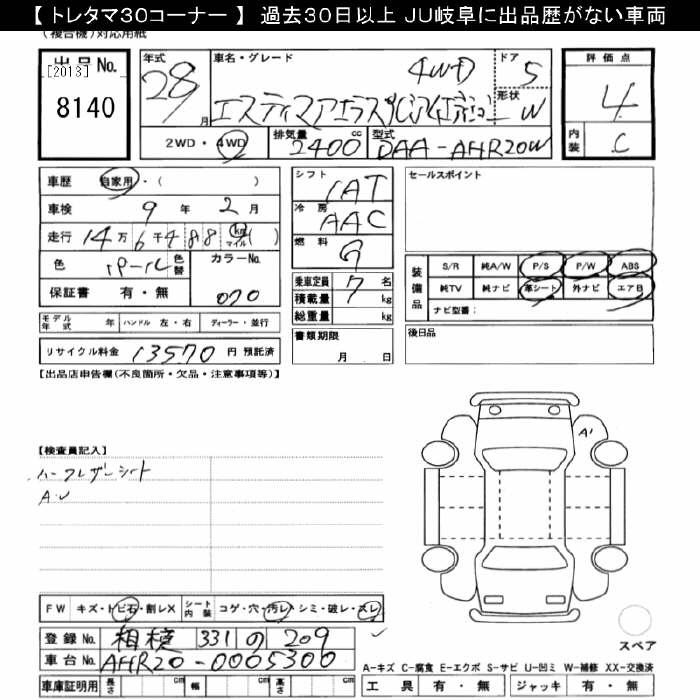 【 トレタマ30コーナー 】 過去30日以上 JU岐阜に出品歴がない車両
（複合機）対応用紙
出品No.
[2013]
8140
年式
28
月
車名・グレード
4WD
エスティマアエラス
ドア
5
形状
W
2WD・4WD
排気量
2400
cc
型式
DAA-AHR20W
評価点
4
内装
C
車歴
自家用・（ ）
車検
9 年 2 月
走行
14万6千488 km マイル
色
パール
色替
カラーNo.
070
保証書 有・無
シフト
IAT
冷房
AAC
燃料
G
乗車定員
7 名
積載量 kg
総重量 kg
書類期限
月 日
セールスポイント
装備品
S/R 純A/W P/S P/W ABS
純TV 純ナビ 革シート 外ナビ エアB
ナビ型番：
後日品
モデル年式 年 ハンドル 左・右 ディーラー・並行
リサイクル料金 13570 円 預託済
【出品店申告欄(不良箇所・欠品・注意事項等)】
【検査員記入】
ハーフレザーシート
A・U
A1
FW キズ・トビ石・割レX シート内装 コゲ・穴・汚レ・シミ・破レ・スレ
登録No. 相模 331 の 209
車台No. AHR20-0005300
車庫証明用 長さ cm 幅 cm 高さ cm
スペア
A-キズ C-腐食 E-エクボ S-サビ U-凹ミ W-補修 XX-交換済
工具 有・無 ジャッキ 有・無